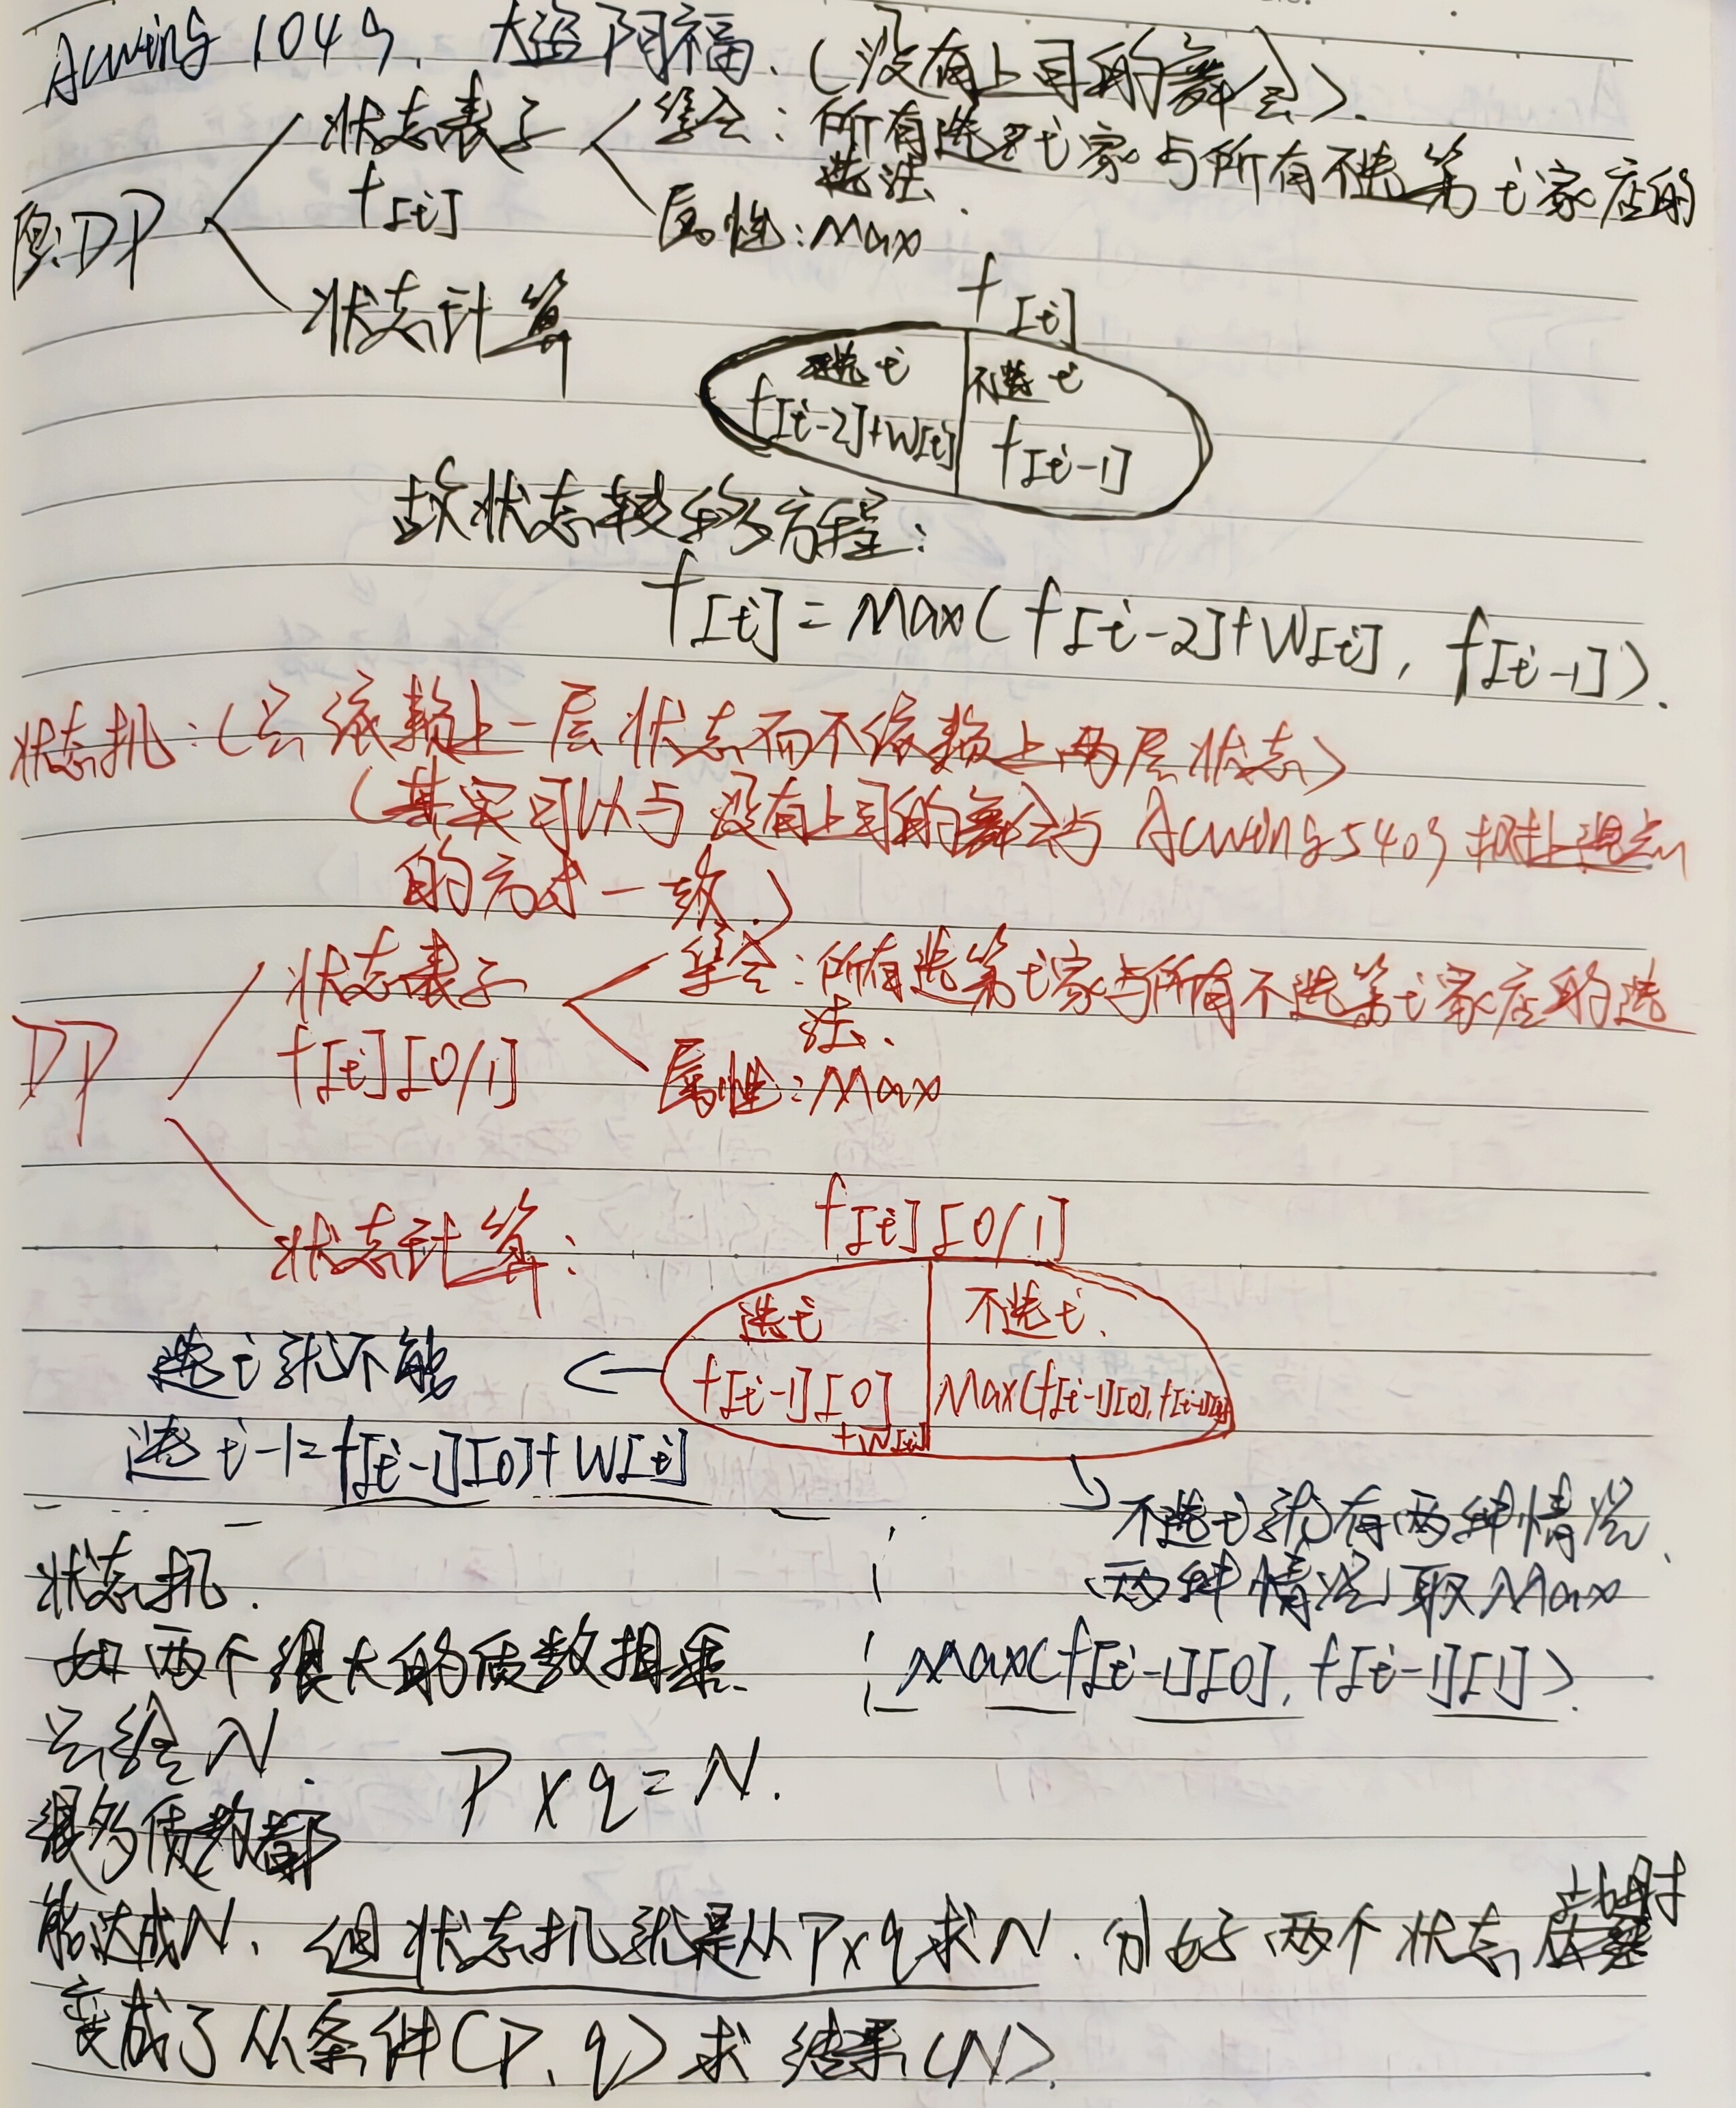 Acwing 1049. 大盗阿福. (没有上司的舞会).
状态表示 集合: 所有选第i家与所有不选第i家店的
选法.
f[i]
属性: Max
DP
状态计算
f[i]
选i 不选i
f[i-2]+W[i] f[i-1]
故状态转移方程:
f[i] = Max( f[i-2]+W[i], f[i-1]).
状态机: (只依赖上一层状态而不依赖上两层状态)
(其实可以与没有上司的舞会与 Acwing 5409 树上选点
的方式一致.)
状态表示 集合: 所有选第i家与所有不选第i家店的选
法.
DP f[i][0/1]
属性: Max
状态计算: f[i][0/1]
选i 不选i.
选i就不能 f[i-1][0] Max(f[i-1][0], f[i-1][1])
+W[i]
选i-1=f[i-1][0]+W[i]
不选i就有两种情况.
两种情况取Max
Max(f[i-1][0], f[i-1][1]).
状态机.
如两个很大的质数相乘.
只给N.
P x q = N.
很多质数都
能达成N. 但状态机就是从Pxq求N. 分好两个状态 此时
变成了从条件(P、q)求结果(N).